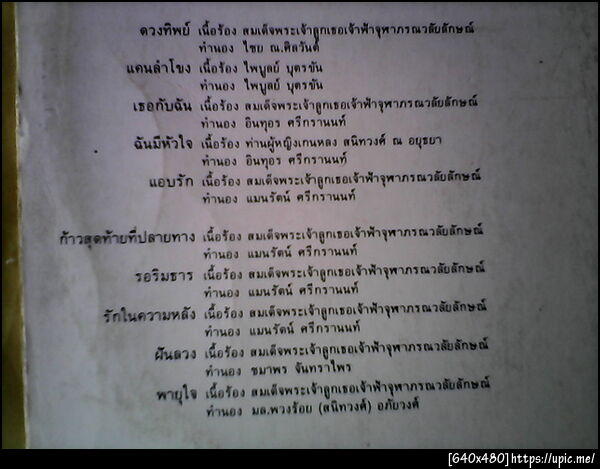 ดวงทิพย์ เนื้อร้อง สมเด็จพระเจ้าลูกเธอเจ้าฟ้าจุฬาภรณวลัยลักษณ์
ทำนอง ไชย ณ.ศิลวันต์
แคนลำโขง เนื้อร้อง ไพบูลย์ บุตรขัน
ทำนอง ไพบูลย์ บุตรขัน
เธอกับฉัน เนื้อร้อง สมเด็จพระเจ้าลูกเธอเจ้าฟ้าจุฬาภรณวลัยลักษณ์
ทำนอง อินทุอร ศรีกรานนท์
ฉันมีหัวใจ เนื้อร้อง ท่านผู้หญิงเกนหลง สนิทวงศ์ ณ อยุธยา
ทำนอง อินทุอร ศรีกรานนท์
แอบรัก เนื้อร้อง สมเด็จพระเจ้าลูกเธอเจ้าฟ้าจุฬาภรณวลัยลักษณ์
ทำนอง แมนรัตน์ ศรีกรานนท์
ก้าวสุดท้ายที่ปลายทาง เนื้อร้อง สมเด็จพระเจ้าลูกเธอเจ้าฟ้าจุฬาภรณวลัยลักษณ์
ทำนอง แมนรัตน์ ศรีกรานนท์
รอริมธาร เนื้อร้อง สมเด็จพระเจ้าลูกเธอเจ้าฟ้าจุฬาภรณวลัยลักษณ์
ทำนอง แมนรัตน์ ศรีกรานนท์
รักในความหลัง เนื้อร้อง สมเด็จพระเจ้าลูกเธอเจ้าฟ้าจุฬาภรณวลัยลักษณ์
ทำนอง แมนรัตน์ ศรีกรานนท์
ฝันลวง เนื้อร้อง สมเด็จพระเจ้าลูกเธอเจ้าฟ้าจุฬาภรณวลัยลักษณ์
ทำนอง ชมาพร จันทราไพร
พายุใจ เนื้อร้อง สมเด็จพระเจ้าลูกเธอเจ้าฟ้าจุฬาภรณวลัยลักษณ์
ทำนอง มล.พวงร้อย (สนิทวงศ์) อภัยวงศ์
[640x480]https://upic.me/